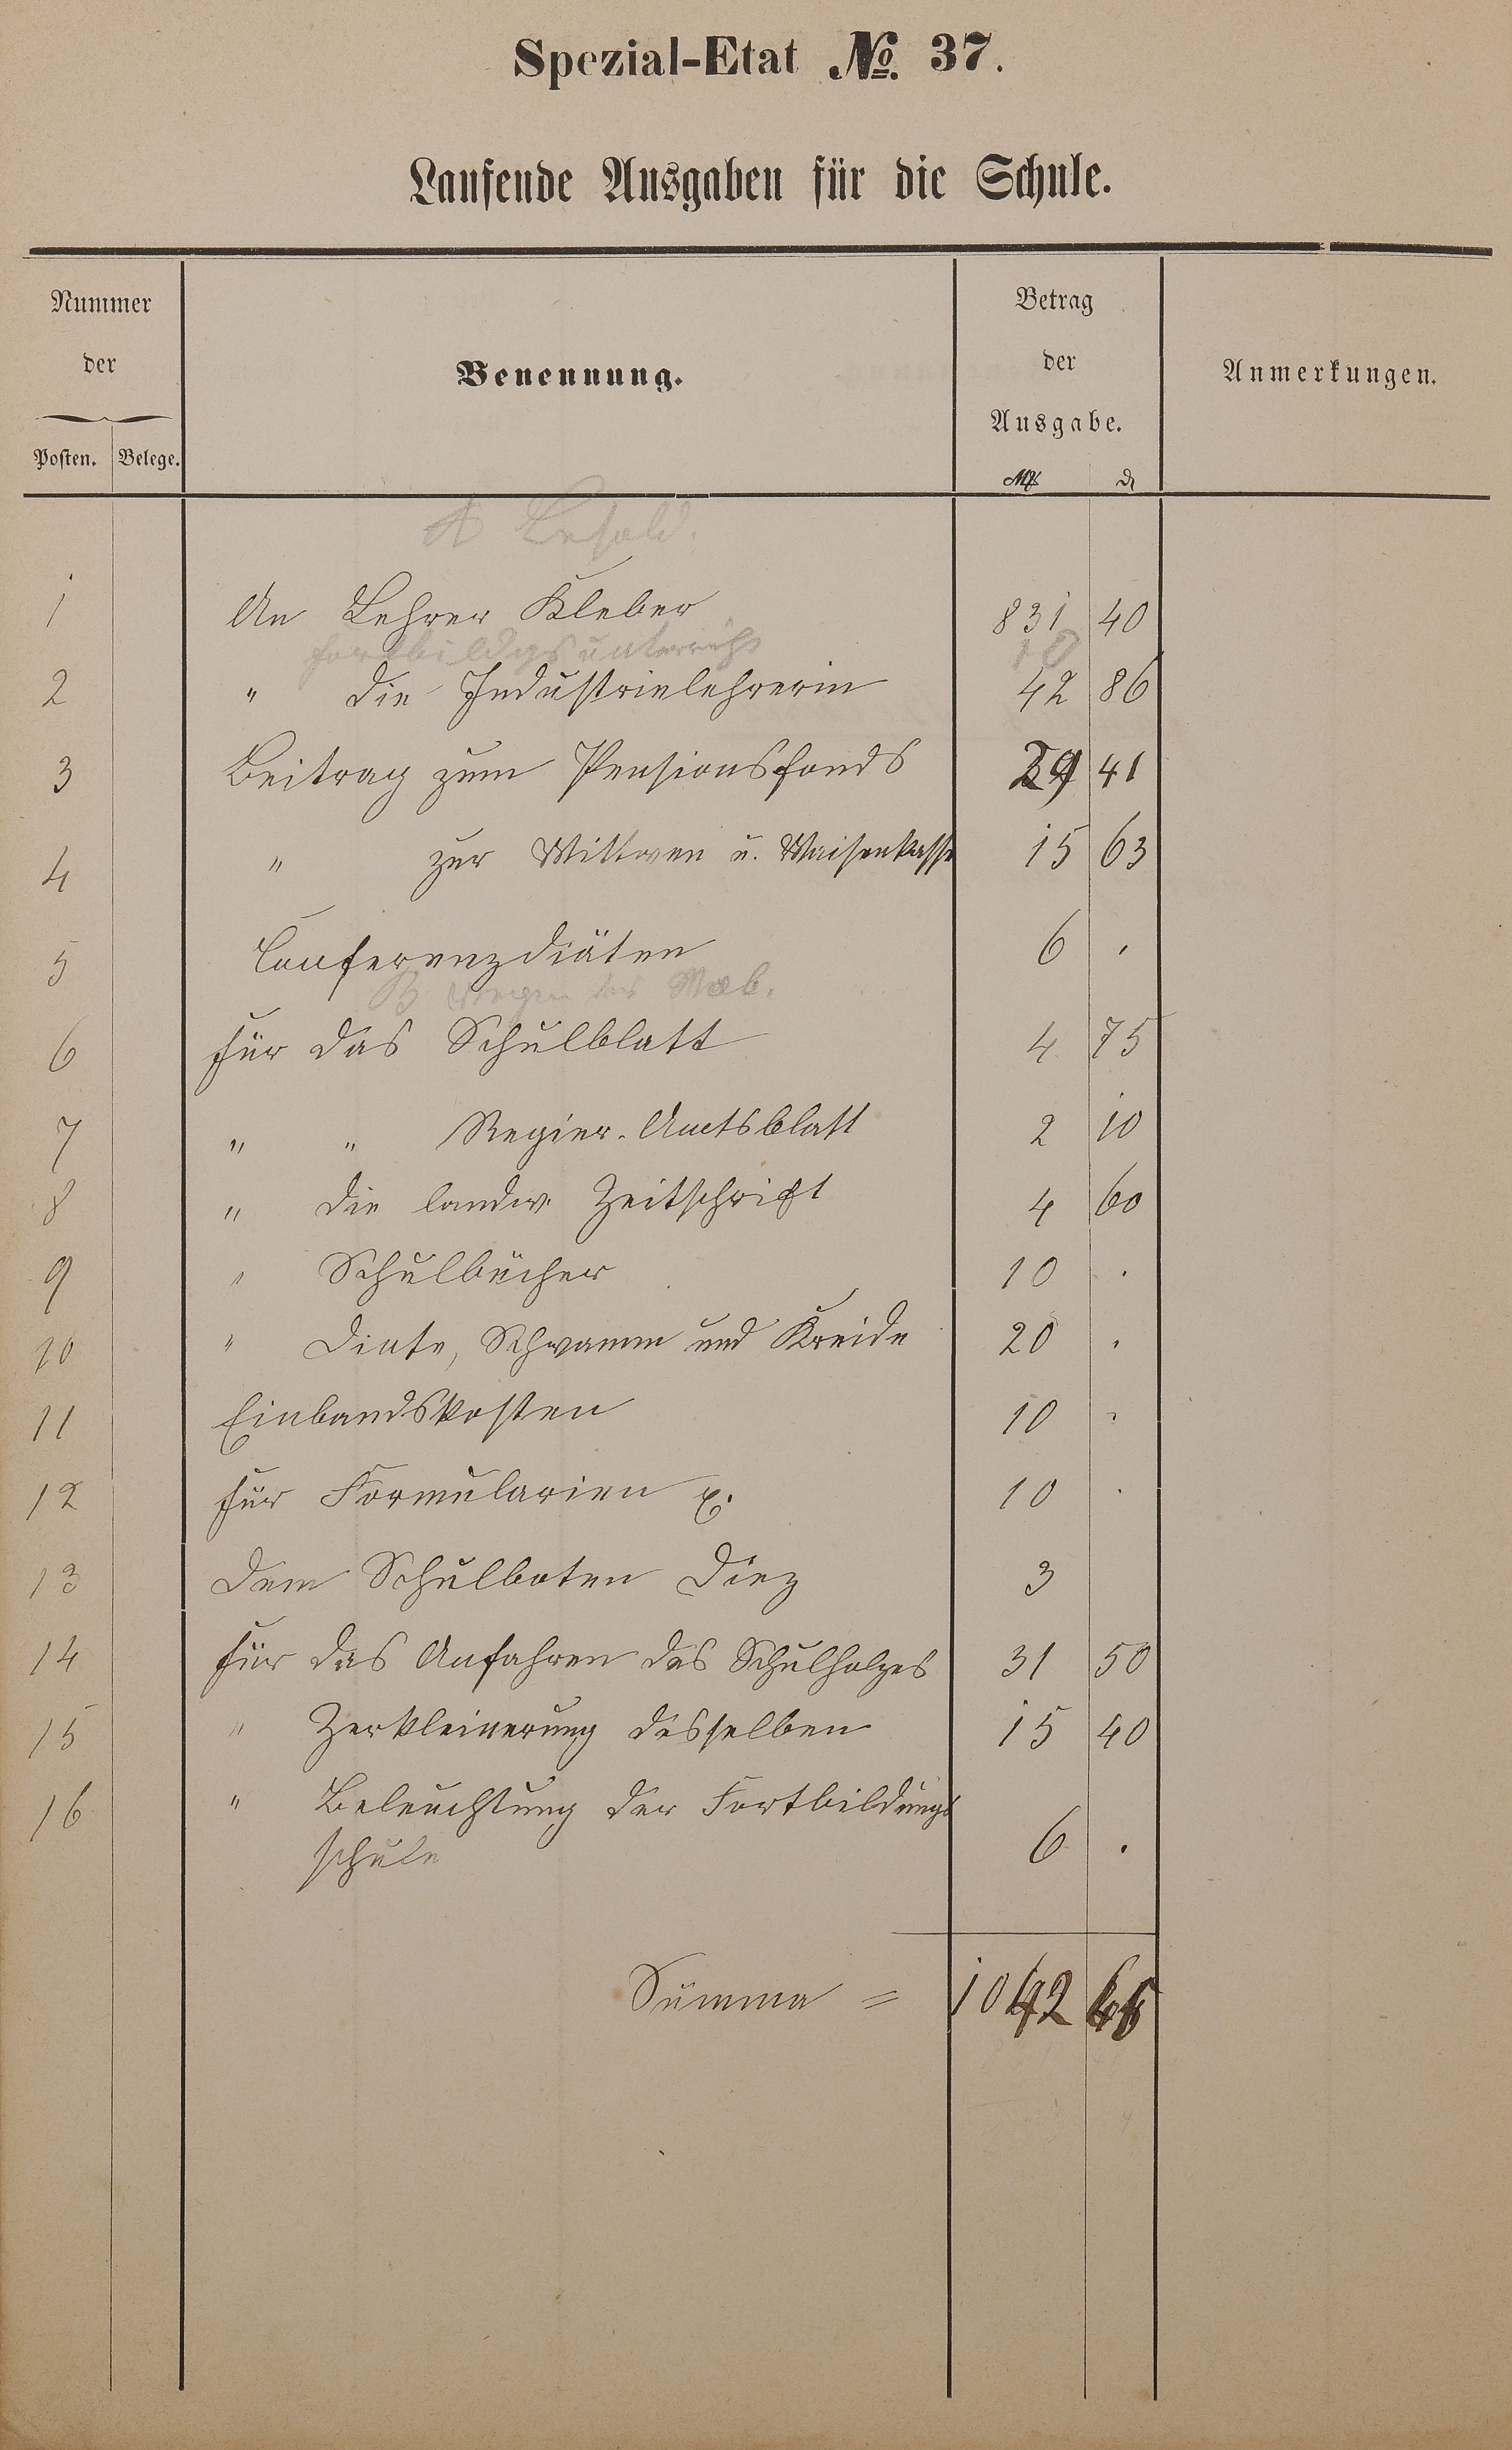 Spezial-Etat No. 37.
Laufende Ausgaben für die Schule.
Nummer
der
Posten. Belege.
Benennung.
Betrag
der
Ausgabe.
M ₰
Anmerkungen.
A Besold.
1 An Lehrer Kleber 831 40
Fortbildgsunterricht 10
2 " die Industrielehrerin 42 86
3 Beitrag zum Pensionsfonds 29 41
4 " zur Wittwen u. Waisenkasse 15 63
5 Conferenzdiäten 6 .
B wegen der
6 für das Schulblatt 4 75
7 " " Regier. Amtsblatt 2 10
8 " die landw. Zeitschrift 4 60
9 " Schulbücher 10 .
10 " Dinte, Schwamm und Kreide 20 .
11 Einbandskosten 10 .
12 für Formularien x. 10 .
13 dem Schulboten Diez 3
14 für das Anfahren des Schulholzes 31 50
15 " Zerkleinerung desselben 15 40
16 " Beleuchtung der Fortbildungs
schule 6 .
Summa = 1042 65